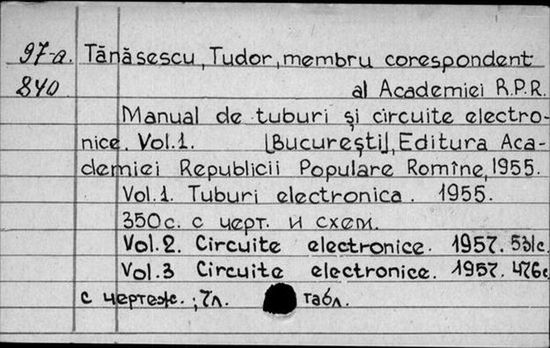 97-а. Tănăsescu, Tudor, membru corespondent
840 al Academiei R.P.R.
Manual de tuburi și circuite electro-
nice. Vol.1. [București], Editura Aca-
demiei Republicii Populare Romîne, 1955.
Vol.1. Tuburi electronica. 1955.
350с. с черт. и схем.
Vol.2. Circuite electronice. 1957. 531с.
Vol.3 Circuite electronice. 1957. 476с
с чертеж. ; 7л. табл.